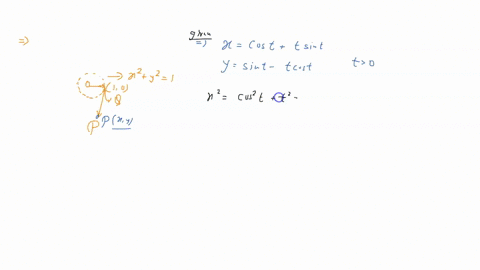 ⇒
given
⇒ x = cost + t sint
y = sint - t cost    t>0
x² + y² = 1
O
(1, 0)
Q
P P(x, y)
x² = cos² t + t² -